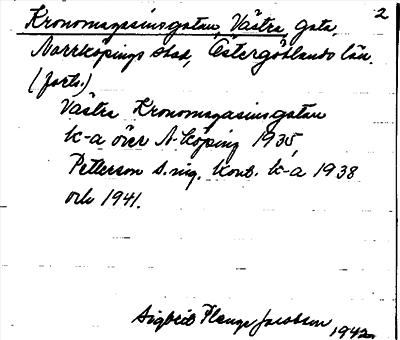 Kronomagasinsgatan, Västra, gata 2
Norrköpings stad, Östergötlands län.
(forts.)
Västra Kronomagasinsgatan
k-a över N-köping 1935,
Petterson s. ing. kont. k-a 1938
och 1941.
Sigbrit Plenge Jacobson
1942